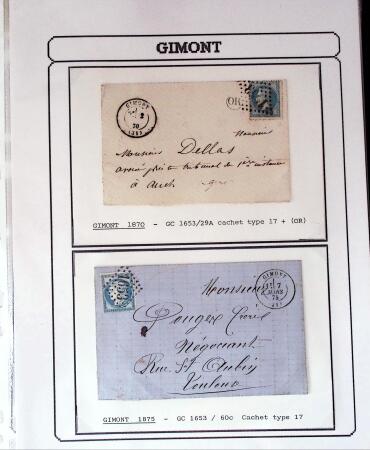 GIMONT
GIMONT
2
70
(31)
OR
Monsieur
Monsieur Dellas
avoué près le tribunal de 1ère instance
à Auch
GIMONT 1870 - GC 1653/29A cachet type 17 + (OR)
GIMONT
7
MARS
75
Monsieur
Pouger
Négociant
Rue St Aubin
Toulouse
GIMONT 1875 - GC 1653 / 60c Cachet type 17